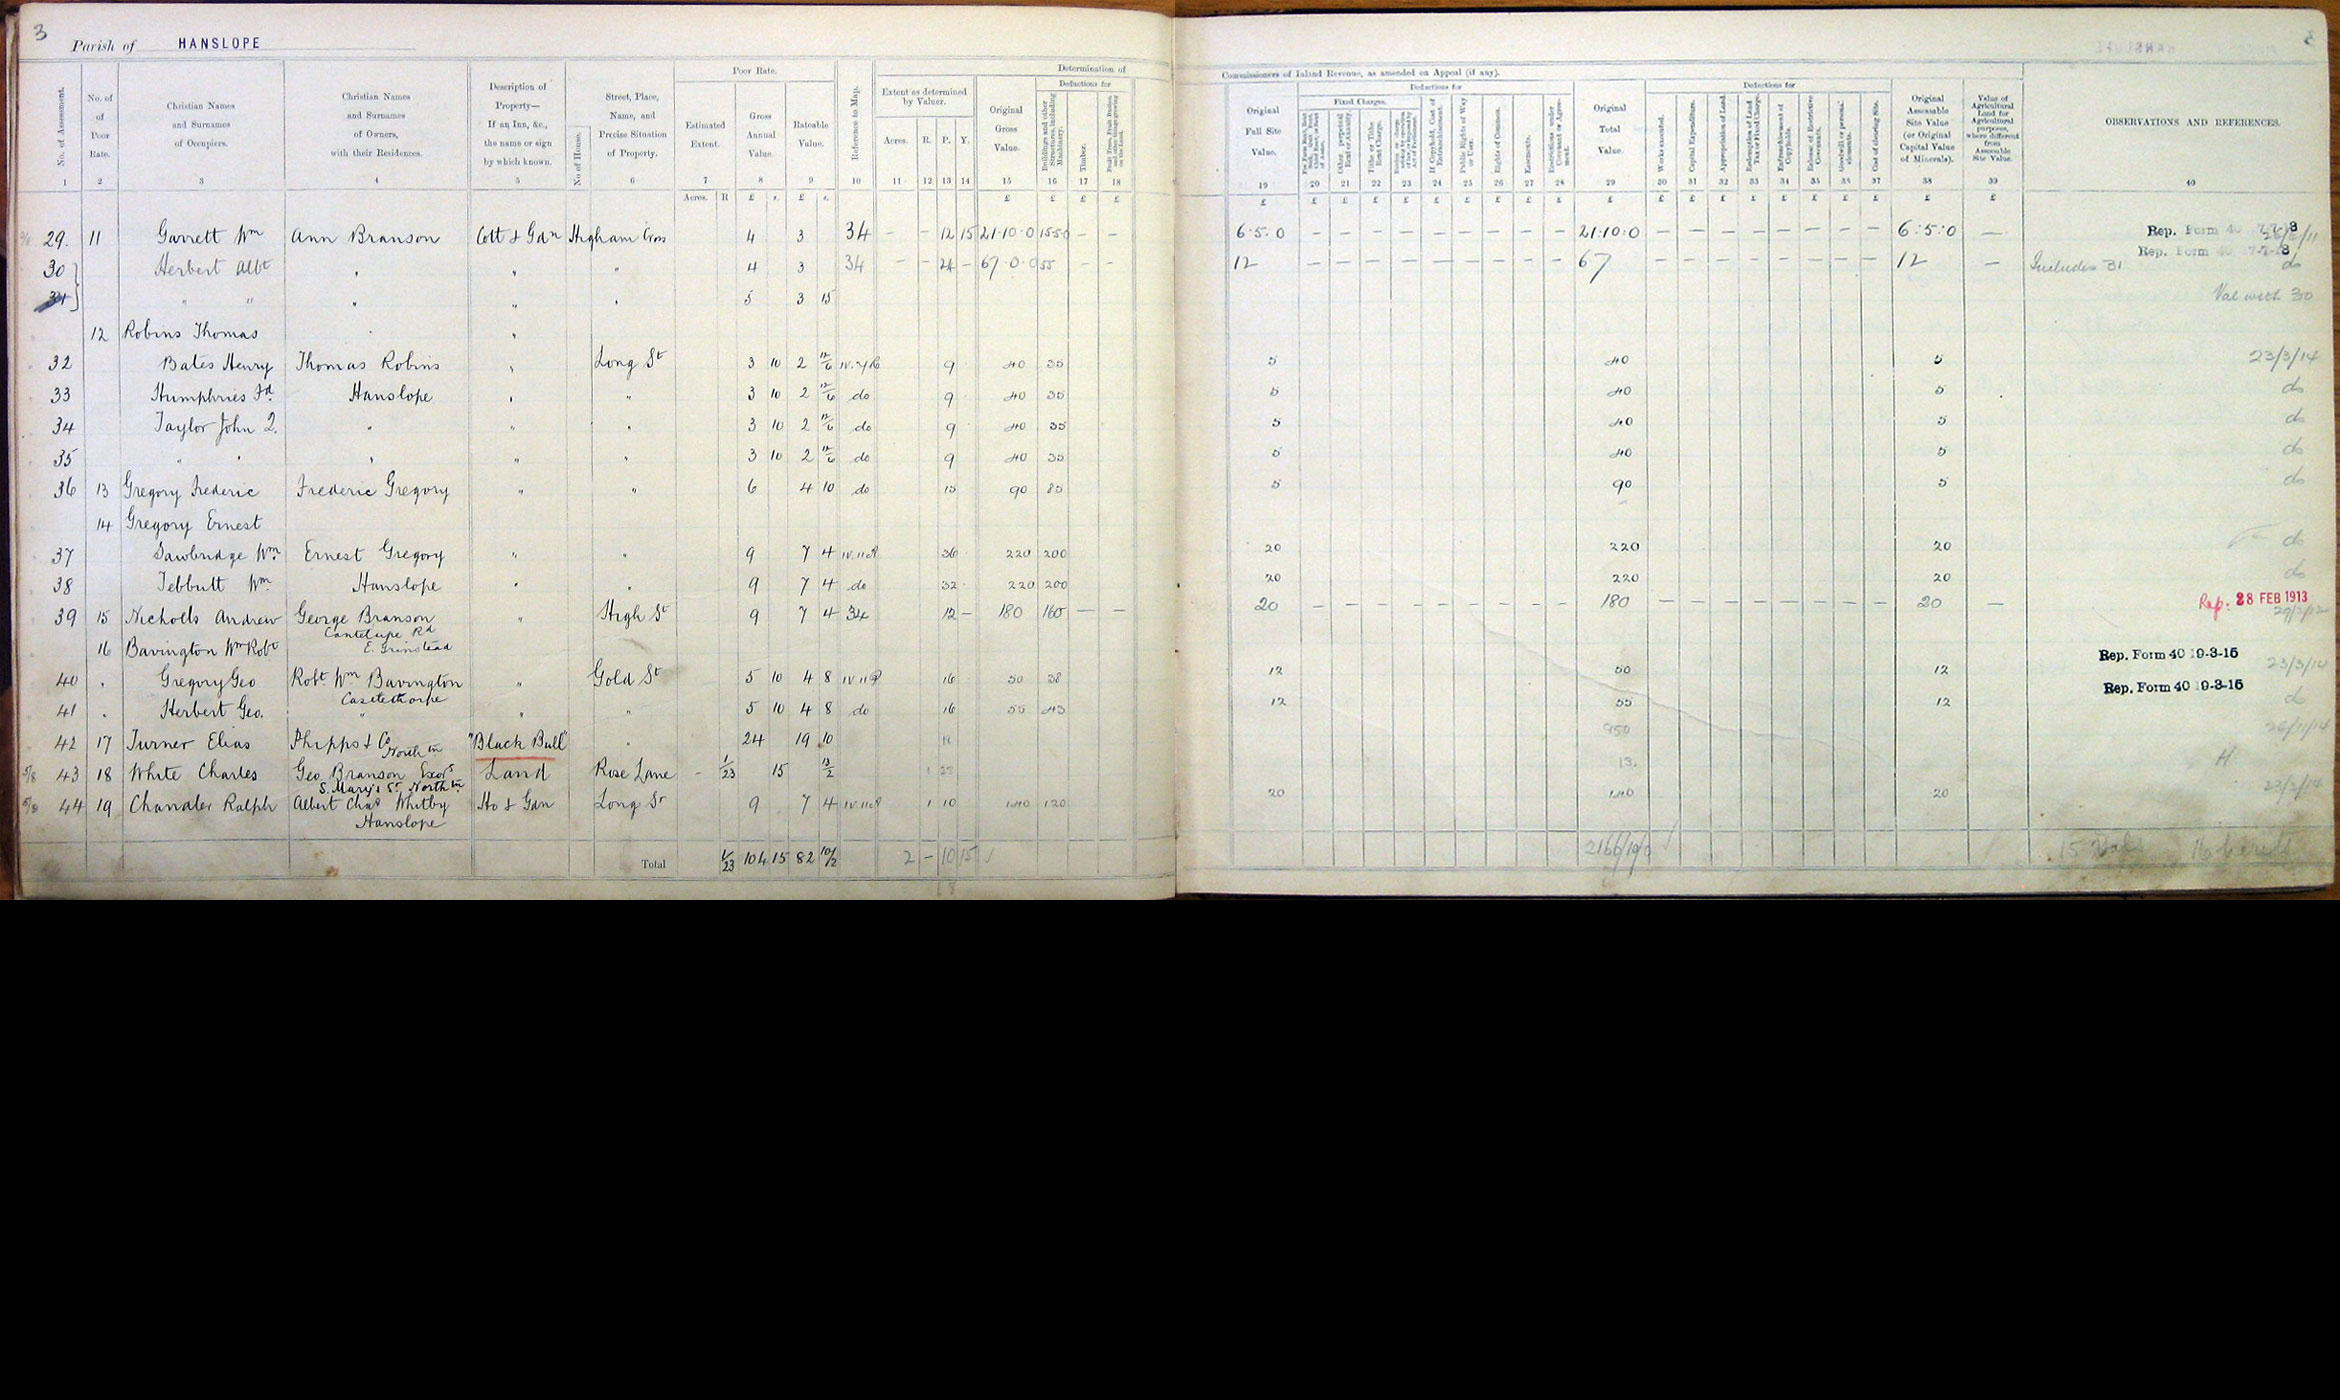 3
Parish of HANSLOPE
Poor Rate.
Determination of
Commissioners of Inland Revenue, as amended on Appeal (if any).
No. of Assessment. 1
No. of Poor Rate. 2
Christian Names and Surnames of Occupiers. 3
Christian Names and Surnames of Owners, with their Residences. 4
Description of Property— If an Inn, &c., the name or sign by which known. 5
No of House.
Street, Place, Name, and Precise Situation of Property. 6
Estimated Extent. 7
Gross Annual Value. 8
Rateable Value. 9
Reference to Map. 10
Extent as determined by Valuer.
Acres. 11 R. 12 P. 13 Y. 14
Original Gross Value. 15
Deductions for
Buildings and other Structures, including Machinery. 16
Timber. 17
Fruit Trees, Fruit Bushes, and other things growing on the Land. 18
Original Full Site Value. 19
Deductions for
Fixed Charges.
20
Other perpetual Rent or Annuity. 21
Tithe or Tithe Rent Charge. 22
23
If Copyhold, Cost of Enfranchisement. 24
Public Rights of Way or User. 25
Rights of Common. 26
Easements. 27
Restrictions under Covenant or Agreement. 28
Original Total Value. 29
Deductions for
Works executed. 30
Capital Expenditure. 31
Appropriation of Land. 32
Redemption of Land Tax or Fixed Charge. 33
Enfranchisement of Copyholds. 34
Release of Restrictive Covenants. 35
Goodwill or personal elements. 36
Cost of clearing Site. 37
Original Assessable Site Value (or Original Capital Value of Minerals). 38
Value of Agricultural Land for Agricultural purposes, where different from Assessable Site Value. 39
OBSERVATIONS AND REFERENCES. 40
Acres. R £ s. £ s. £ £ £ £ £ £ £ £ £ £ £ £ £ £ £ £ £ £ £ £ £ £ £ £ £
29. 11 Garrett Wm Ann Branson Cott & Gdn Higham Cross 4 3 34 - - 12 15 21.10.0 15.5.0 - - 6.5.0 - - - - - - - - - 21:10:0 - - - - - - - - 6:5:0 — Rep. Form 40 7-7-13
30 Herbert Albt " " " 4 3 34 - - 24 - 67.0.0 55 - - 12 - - - - - - - - - 67 - - - - - - - - 12 — Includes 31 Rep. Form 40 7-7-13 do
31 " " " " " 5 3 15 Val with 30
12 Robins Thomas " "
32 Bates Henry Thomas Robins " Long St 3 10 2 12/6 9 40 35 5 40 5 23/3/14
33 Humphries Fd. Hanslope " " 3 10 2 12/6 do 9 40 35 5 40 5 do
34 Taylor John 2. " " " 3 10 2 12/6 do 9 40 35 5 40 5 do
35 " " " " " 3 10 2 12/6 do 9 40 35 5 40 5 do
36 13 Gregory Frederic Frederic Gregory " " 6 4 10 do 15 90 85 5 90 5 do
14 Gregory Ernest
37 Sawbridge Wm. Ernest Gregory " " 9 7 4 36 220 200 20 220 20 do
38 Tebbutt Wm. Hanslope " " 9 7 4 do 32 220 200 20 220 20 do
39 15 Nicholls Andrew George Branson " High St 9 7 4 34 12 - 180 160 — — 20 - - - - - - - - - 180 - - - - - - - - 20 — Rep. 28 FEB 1913
Cantelupe Rd
16 Bavington Wm Robt E. Grinstead
Rep. Form 40 19-3-15
40 " Gregory Geo Robt. Wm Bavington " Gold St 5 10 4 8 16 50 38 12 50 12 23/3/14
Castlethorpe
Rep. Form 40 19-3-15
41 " Herbert Geo. " " " 5 10 4 8 do 16 55 43 12 55 12 do
42 17 Turner Elias Phipps & Co North'tn "Black Bull" " 24 19 10 950
43 18 White Charles Geo. Branson Exors Land Rose Lane - 1/23 15 13/2 13.
S. Mary's St North'tn
44 19 Chandler Ralph Albert Chas Whitby Ho & Gdn Long St 9 7 4 1 10 140 120 20 140 20
Hanslope
Total 1/23 104 15 82 10/2 2 - 10 15